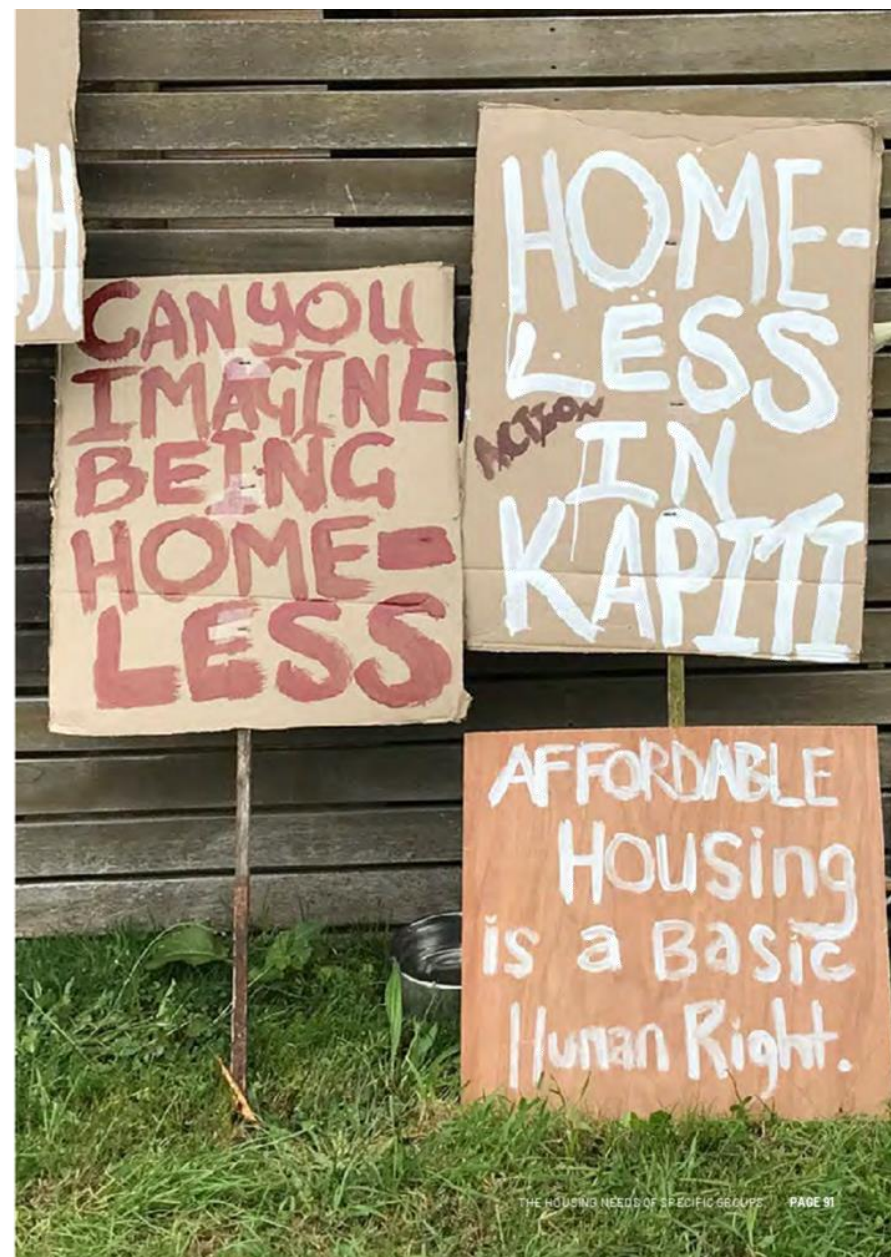 TH
CAN YOU
IMAGINE
BEING
HOME-
LESS
HOME-
LESS
ACTION
IN
KAPITI
AFFORDABLE
Housing
is a Basic
Human Right.
THE HOUSING NEEDS OF SPECIFIC GROUPS PAGE 91